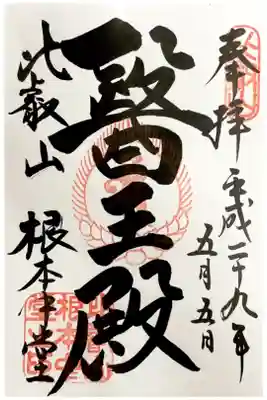 奉拝
平成二十九年
五月五日
醫王殿
比叡山
根本中堂